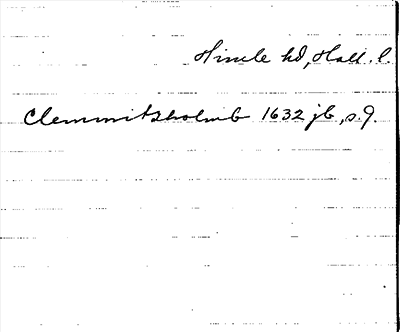 Himle hd, Hall. l.
Clemmitzholmb 1632 jb, s. 9.